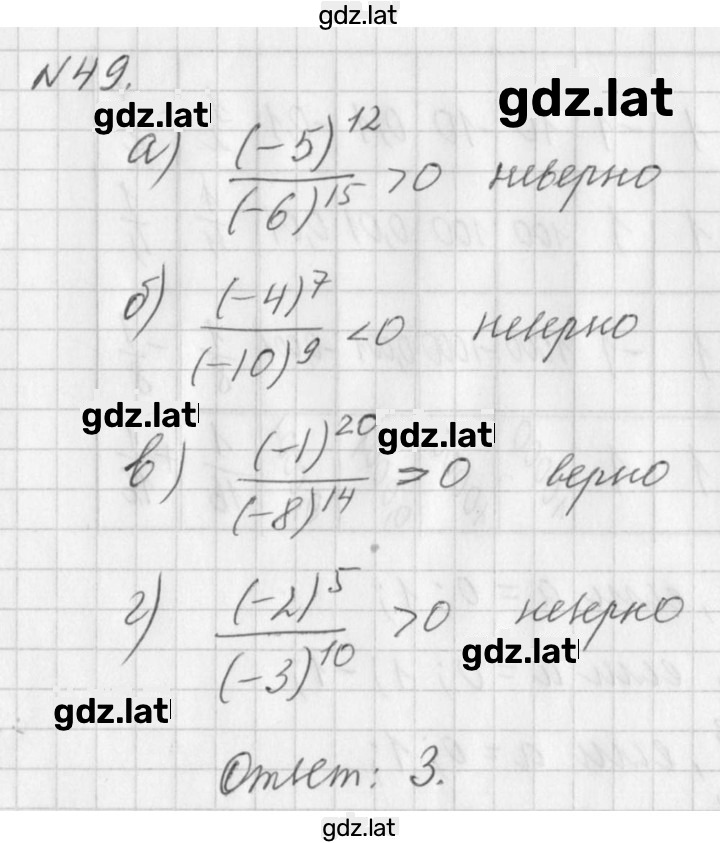 gdz.lat
№49.
gdz.lat
gdz.lat
а) (-5)^12 / (-6)^15 > 0 неверно
б) (-4)^7 / (-10)^9 < 0 неверно
gdz.lat
gdz.lat
в) (-1)^20 / (-8)^14 > 0 верно
г) (-2)^5 / (-3)^10 > 0 неверно
gdz.lat
gdz.lat
Ответ: 3.
gdz.lat